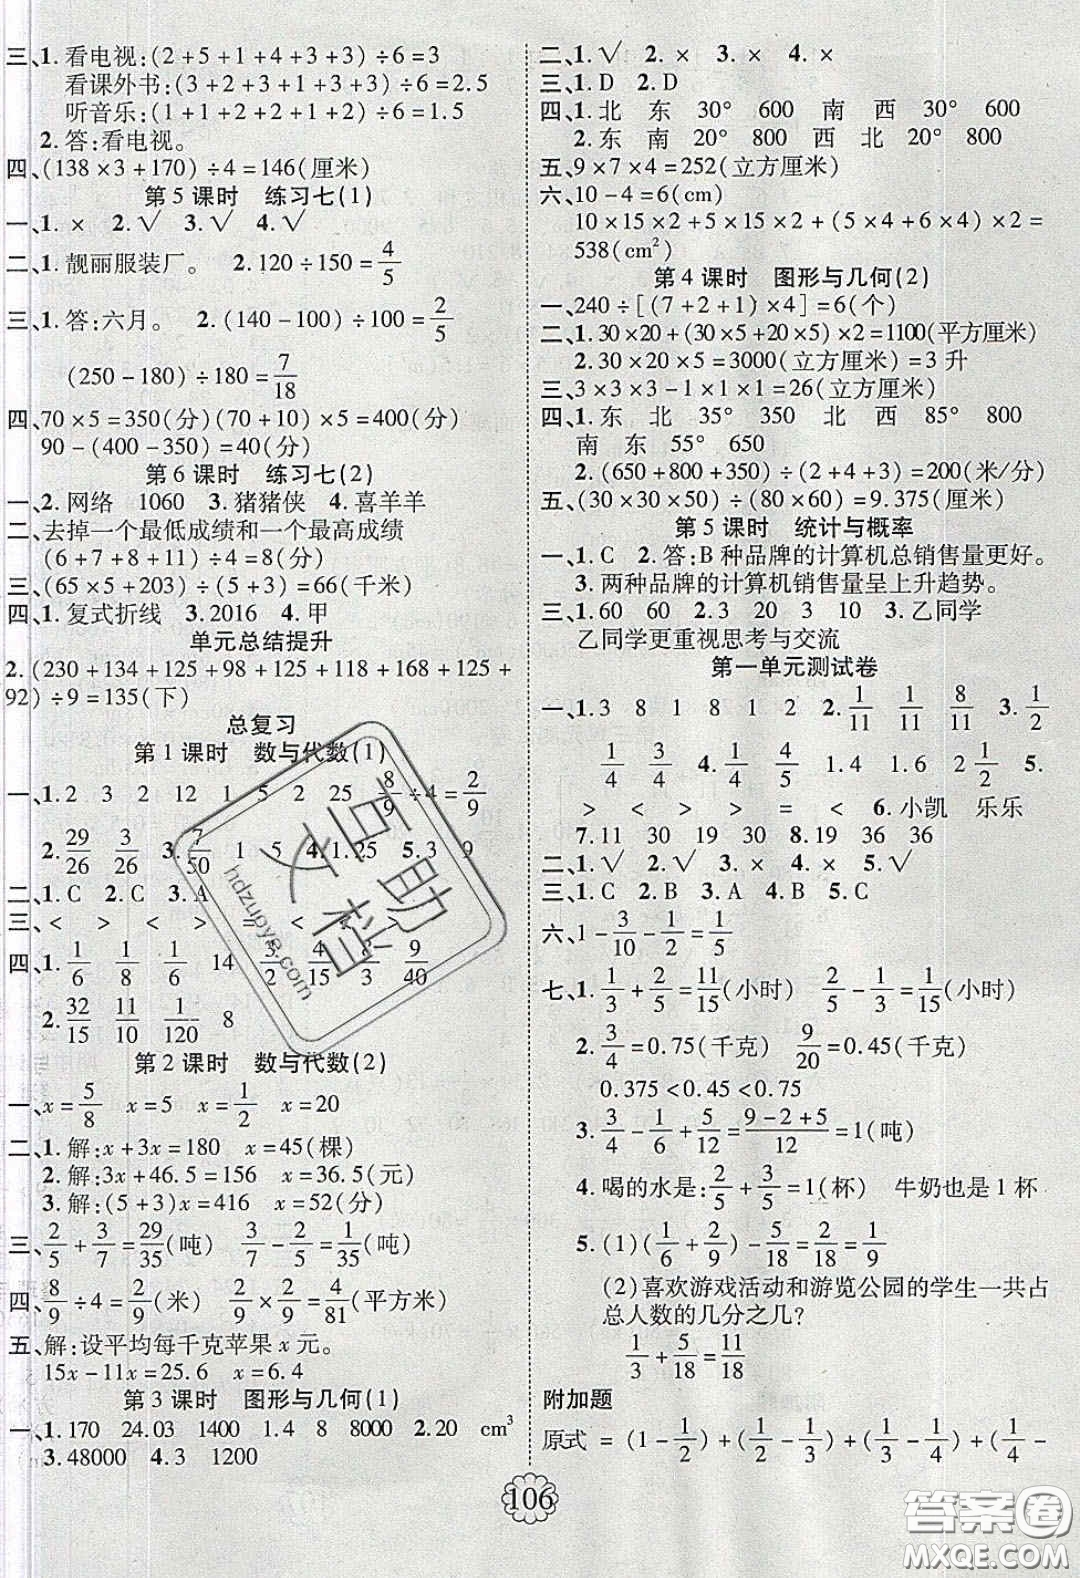 三、1.看电视:(2+5+1+4+3+3)÷6=3
看课外书:(3+2+3+1+4+2)÷6=2.5
听音乐:(1+1+2+2+1+2)÷6=1.5
2.答:看电视。
四、(138×3+170)÷4=146(厘米)
第5课时 练习七(1)
一、1.× 2.√ 3.√ 4.√
二、1.靓丽服装厂。 2.120÷150=4/5
三、1.答:六月。 2.(140-100)÷100=2/5
(250-180)÷180=7/18
四、70×5=350(分)(70+10)×5=400(分)
90-(400-350)=40(分)
第6课时 练习七(2)
一、2.网络 1060 3.猪猪侠 4.喜羊羊
二、去掉一个最低成绩和一个最高成绩
(6+7+8+11)÷4=8(分)
三、(65×5+203)÷(5+3)=66(千米)
四、1.复式折线 3.2016 4.甲
单元总结提升
2.(230+134+125+98+125+118+168+125+
92)÷9=135(下)
总复习
第1课时 数与代数(1)
一、1.2 3 2 12 1 5 2 25 8/9÷4=2/9
2.29/26 3/26 3.7/50 1 5 4.1.25 5.3 9
二、1.C 2.C 3.A
三、< > < > = < < >
四、1.1/6 1/8 1/6 14 3/2 4/15 8/3 9/40
2.32/15 11/10 1/120 8
第2课时 数与代数(2)
一、x=5/8 x=5 x=1/2 x=20
二、1.解:x+3x=180 x=45(棵)
2.解:3x+46.5=156 x=36.5(元)
3.解:(5+3)x=416 x=52(分)
三、2/5+3/7=29/35(吨) 3/7-2/5=1/35(吨)
四、8/9÷4=2/9(米) 2/9×2/9=4/81(平方米)
五、解:设平均每千克苹果x元。
15x-11x=25.6 x=6.4
第3课时 图形与几何(1)
一、1.170 24.03 1400 1.4 8 8000 2.20 cm³
3.48000 4.3 1200
二、1.√ 2.× 3.× 4.×
三、1.D 2.D
四、1.北 东 30° 600 南 西 30° 600
2.东 南 20° 800 西 北 20° 800
五、9×7×4=252(立方厘米)
六、10-4=6(cm)
10×15×2+5×15×2+(5×4+6×4)×2=
538(cm²)
第4课时 图形与几何(2)
一、240÷[(7+2+1)×4]=6(个)
二、1.30×20+(30×5+20×5)×2=1100(平方厘米)
2.30×20×5=3000(立方厘米)=3升
三、3×3×3-1×1×1=26(立方厘米)
四、1.东 北 35° 350 北 西 85° 800
南 东 55° 650
2.(650+800+350)÷(2+4+3)=200(米/分)
五、(30×30×50)÷(80×60)=9.375(厘米)
第5课时 统计与概率
一、1.C 2.答:B种品牌的计算机总销售量更好。
3.两种品牌的计算机销售量呈上升趋势。
三、1.60 60 2.3 20 3 10 3.乙同学
乙同学更重视思考与交流
第一单元测试卷
一、1.3 8 1 8 1 2 2.1/11 1/11 8/11 3.1/2
1/4 3/4 4.1/4 4/5 1.4 1.6 2 1/2 5.
> < > > = < 6.小凯 乐乐
7.11 30 19 30 8.19 36 36
二、1.√ 2.√ 3.× 4.× 5.√
三、1.C 2.B 3.A 4.B 5.C
六、1-3/10-1/2=1/5
七、1.1/3+2/5=11/15(小时) 2/5-1/3=1/15(小时)
2.3/4=0.75(千克) 9/20=0.45(千克)
0.375<0.45<0.75
3.3/4-1/6+5/12=9-2+5/12=1(吨)
4.喝的水是:2/5+3/5=1(杯) 牛奶也是1杯
5.(1)(1/6+2/9)-5/18=2/18=1/9
(2)喜欢游戏活动和游览公园的学生一共占
总人数的几分之几?
1/3+5/18=11/18
附加题
原式=(1-1/2)+(1/2-1/3)+(1/3-1/4)+(1/4-
106
百文助档
hdzuoye.com
答案圈
MXQE.COM